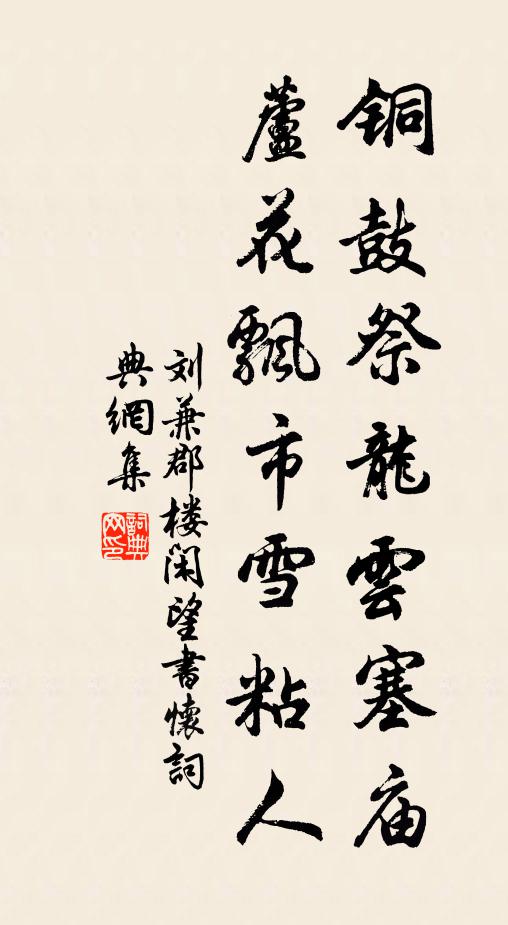 铜鼓祭龍雲塞庙
蘆花飄市雪粘人
刘兼郡楼闲望書懷詞
典網集
詞典网印